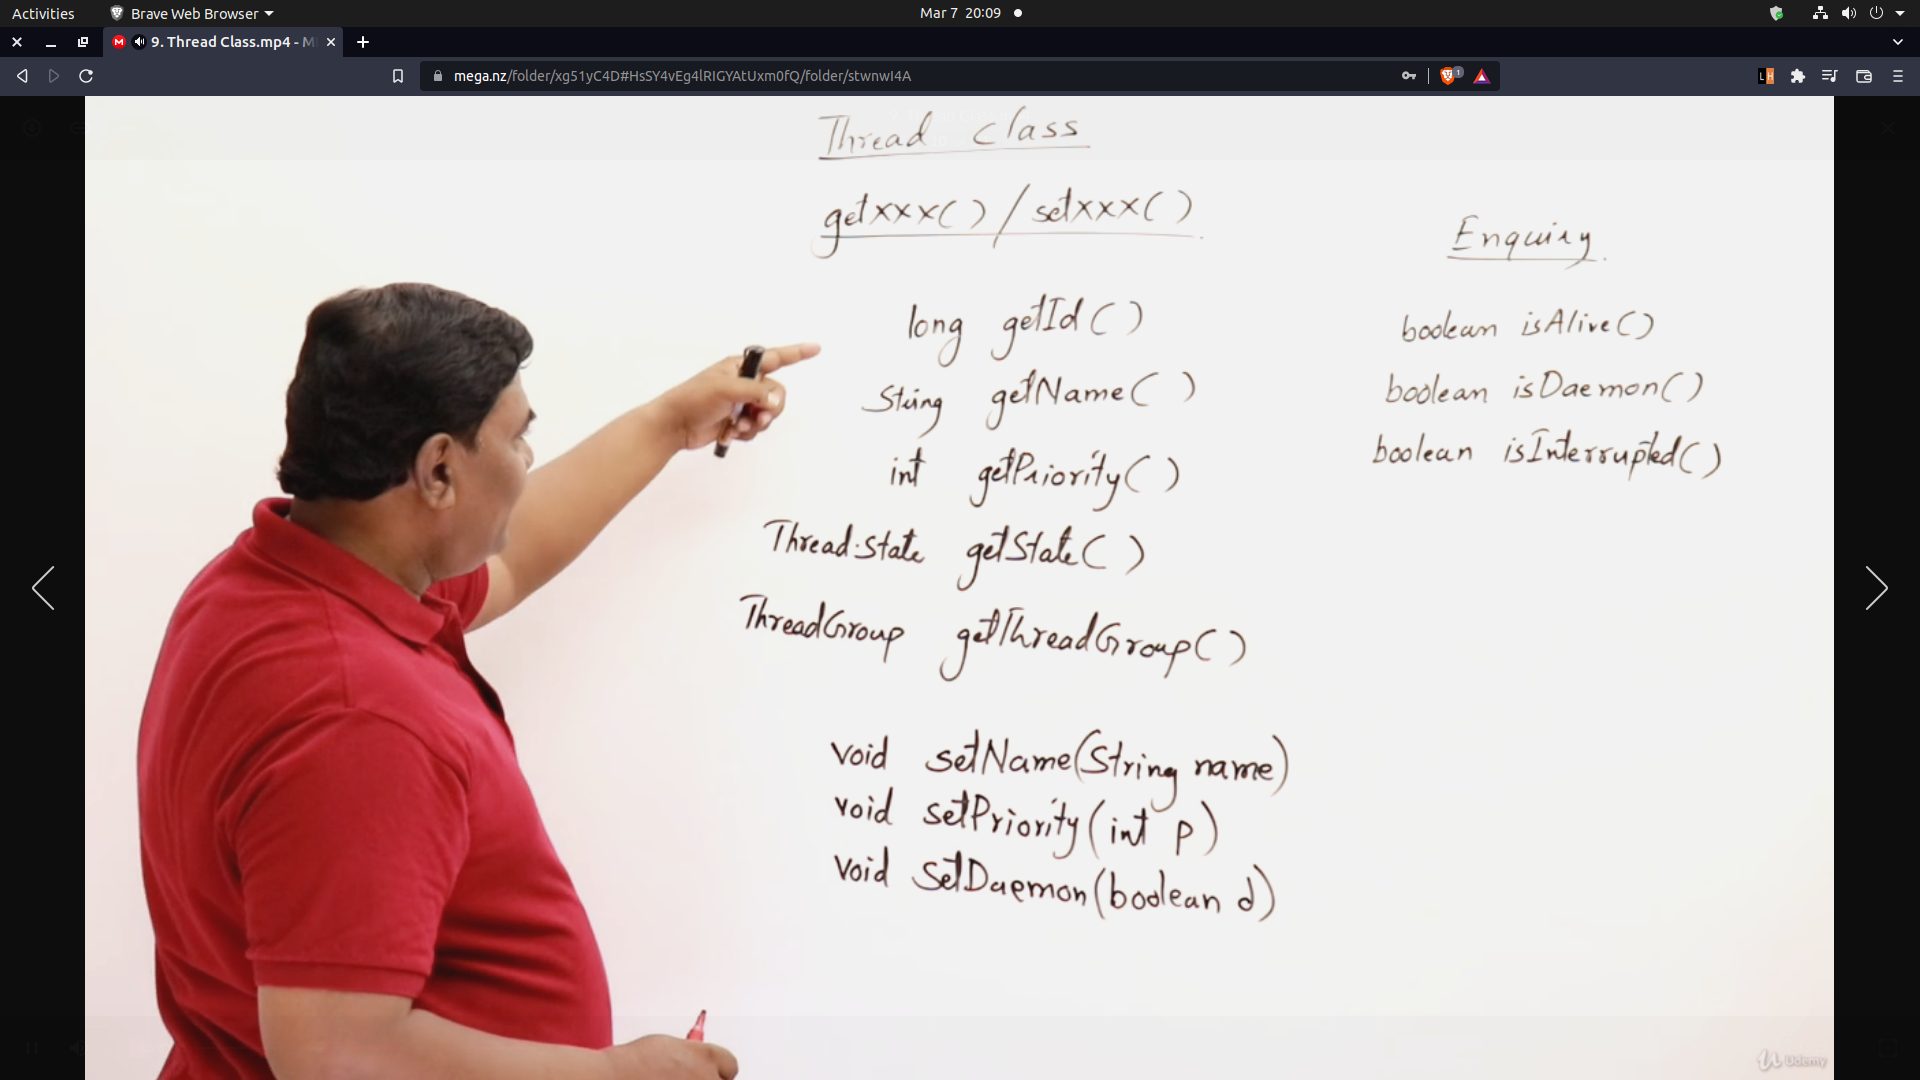 Activities
Brave Web Browser
Mar 7 20:09
9. Thread Class.mp4 - M
mega.nz/folder/xg51yC4D#HsSY4vEg4lRIGYAtUxm0fQ/folder/stwnwI4A
1
Thread class
getxxx() / setxxx()
long getId()
String getName()
int getPriority()
Thread.state getState()
ThreadGroup getThreadGroup()
void setName(String name)
void setPriority(int p)
void setDaemon(boolean d)
Enquiry
boolean isAlive()
boolean isDaemon()
boolean isInterrupted()
Udemy